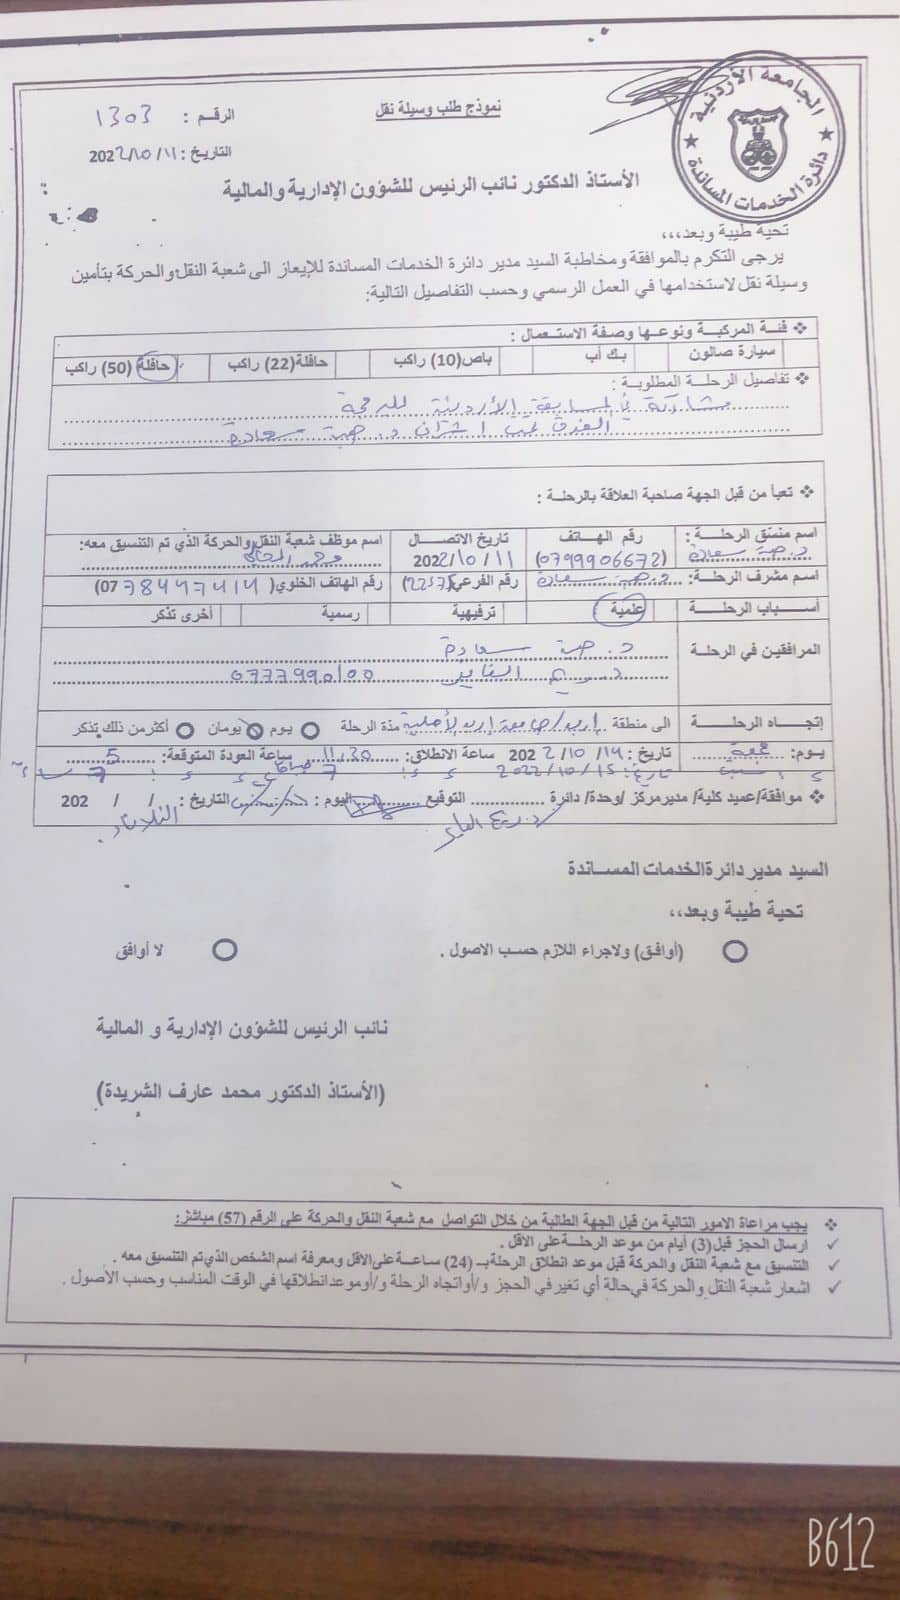 الجامعة الأردنية
دائرة الخدمات المساندة
نموذج طلب وسيلة نقل
الرقم : 1303
التاريخ : 2022/10/11
الأستاذ الدكتور نائب الرئيس للشؤون الإدارية والمالية
تحية طيبة وبعد،،،
يرجى التكرم بالموافقة ومخاطبة السيد مدير دائرة الخدمات المساندة للإيعاز الى شعبة النقل والحركة بتأمين
وسيلة نقل لاستخدامها في العمل الرسمي وحسب التفاصيل التالية:
❖ فئة المركبة ونوعها وصفة الاستعمال :
سيارة صالون بك أب باص(10) راكب حافلة(22) راكب حافلة (50) راكب
❖ تفاصيل الرحلة المطلوبة :
مشاركة في المسابقة الأردنية للبرمجة
د. هبة سعادة
❖ تعبأ من قبل الجهة صاحبة العلاقة بالرحلة :
اسم منسق الرحلة : رقم الهاتف تاريخ الاتصال اسم موظف شعبة النقل والحركة الذي تم التنسيق معه:
د. هبة سعادة (0799906672) 2022/10/11 محمد
اسم مشرف الرحلة: د. هبة سعادة رقم الفرعي(2257) رقم الهاتف الخلوي( 0778447414)
أسباب الرحلة علمية ترفيهية رسمية أخرى تذكر
المرافقين في الرحلة د. هبة سعادة
د. 0777990100
إتجاه الرحلة الى منطقة اربد/جامعة اربد الأهلية مدة الرحلة يوم يومان أكثر من ذلك تذكر
يوم: جمعة تاريخ : 2022/10/14 ساعة الانطلاق: 11:30 ساعة العودة المتوقعة: 5
السبت تاريخ: 2022/10/15 7 صباحا 7 مساء
❖ موافقة/عميد كلية/ مدير مركز /وحدة/ دائرة التوقيع اليوم : التاريخ : / / 202
الثلاثاء
السيد مدير دائرة الخدمات المساندة
تحية طيبة وبعد،،
(أوافق) ولاجراء اللازم حسب الاصول . لا أوافق
نائب الرئيس للشؤون الإدارية و المالية
(الأستاذ الدكتور محمد عارف الشريدة)
❖ يجب مراعاة الامور التالية من قبل الجهة الطالبة من خلال التواصل مع شعبة النقل والحركة على الرقم (57) مباشر:
✓ ارسال الحجز قبل(3) أيام من موعد الرحلة على الاقل .
✓ التنسيق مع شعبة النقل والحركة قبل موعد انطلاق الرحلة بـ (24) ساعة على الاقل ومعرفة اسم الشخص الذي تم التنسيق معه .
✓ اشعار شعبة النقل والحركة في حالة أي تغير في الحجز و/أو اتجاه الرحلة و/أو موعد انطلاقها في الوقت المناسب وحسب الأصول .
B612